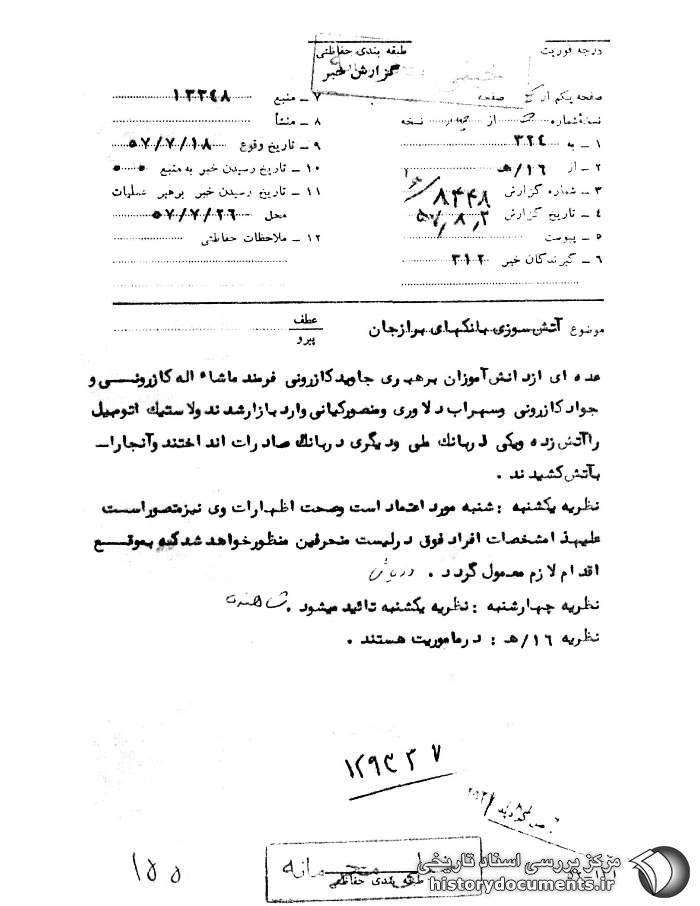 درجه فوریت
طبقه بندی حفاظتی
گزارش خبر
صفحه یکم از صفحه
نسخه شماره از نسخه
۱ ـ به ۳۲۴
۲ ـ از ۱۶/هـ
۳ ـ شماره گزارش ۸۴۴۸
۴ ـ تاریخ گزارش ۵۷٫۸٫۲
۵ ـ پیوست
۶ ـ گیرندگان خبر ۳۱۲
۷ ـ منبع ۱۳۳۴۸
۸ ـ منشأ
۹ ـ تاریخ وقوع ۵۷/۷/۱۸
۱۰ ـ تاریخ رسیدن خبر به منبع
۱۱ ـ تاریخ رسیدن خبر برهبر عملیات
محل ۵۷/۷/۲۶
۱۲ ـ ملاحظات حفاظتی
موضوع آتش سوزی بانکهای برازجان
عطف
پیرو
عده ای ازدانش آموزان برهبری جاوید کازرونی فرمند ماشاء اله کازرونی و
جواد کازرونی وسهراب دلاوری ومنصورکیانی وارد بازارشدند ولاستیک اتومبیل
راآتش زده ویکی دربانک ملی ودیگری دربانک صادرات انداختند وآنجارا
بآتش کشیدند .
نظریه یکشنبه : شنبه مورد اعتماد است وصحت اظهارات وی نیزمتصوراست
علیهذا مشخصات افراد فوق درلیست منحرفین منظورخواهد شد که بموقع
اقدام لازم معمول گردد .
نظریه چهارشنبه : نظریه یکشنبه تائید میشود .
نظریه ۱۶/هـ : درماموریت هستند .
۱۲۹۳۲۷
۱۵۵
محرمانه
طبقه بندی حفاظتی
مرکز بررسی اسناد تاریخی
historydocuments.ir